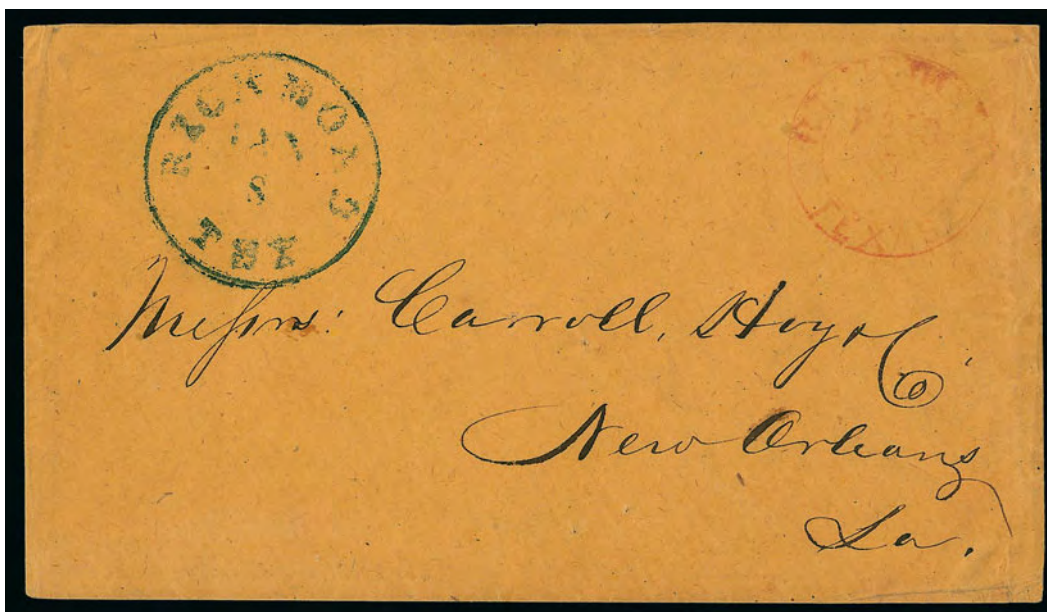 RICHMOND
JAN
8
TEX
TEXAS
Messrs: Carroll, Hoy & Co.
New Orleans
La.